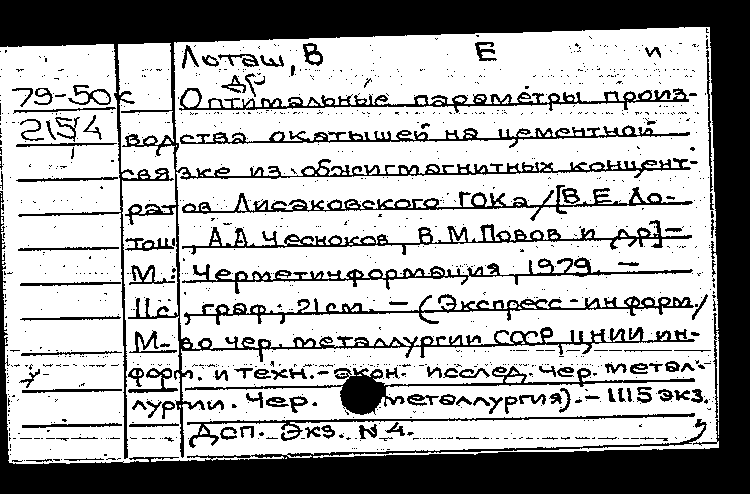 Лоташ, В Е и
др
79-50к Оптимальные параметры произ-
215/4 водства окатышей на цементной
связке из обжигмагнитных концент-
ратов Лисаковского ГОКа/[В.Е. Ло-
таш, А.А. Чесноков, В.М. Попов и др]-
М.: Черметинформация, 1979. -
11с., граф.; 21 см. - (Экспресс-информ./
М-во чер. металлургии СССР, ЦНИИ ин-
форм. и техн.-экон. исслед. чер. метал-
лургии. Чер. металлургия). - 1115 экз.
Доп. Экз. N 4.